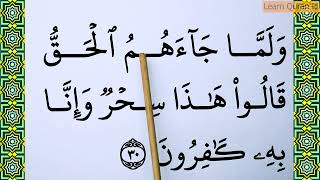 Learn Quran id
وَلَمَّا جَآءَهُمُ ٱلْحَقُّ
قَالُوا۟ هَـٰذَا سِحْرٌ وَإِنَّا
بِهِۦ كَـٰفِرُونَ ٣٠